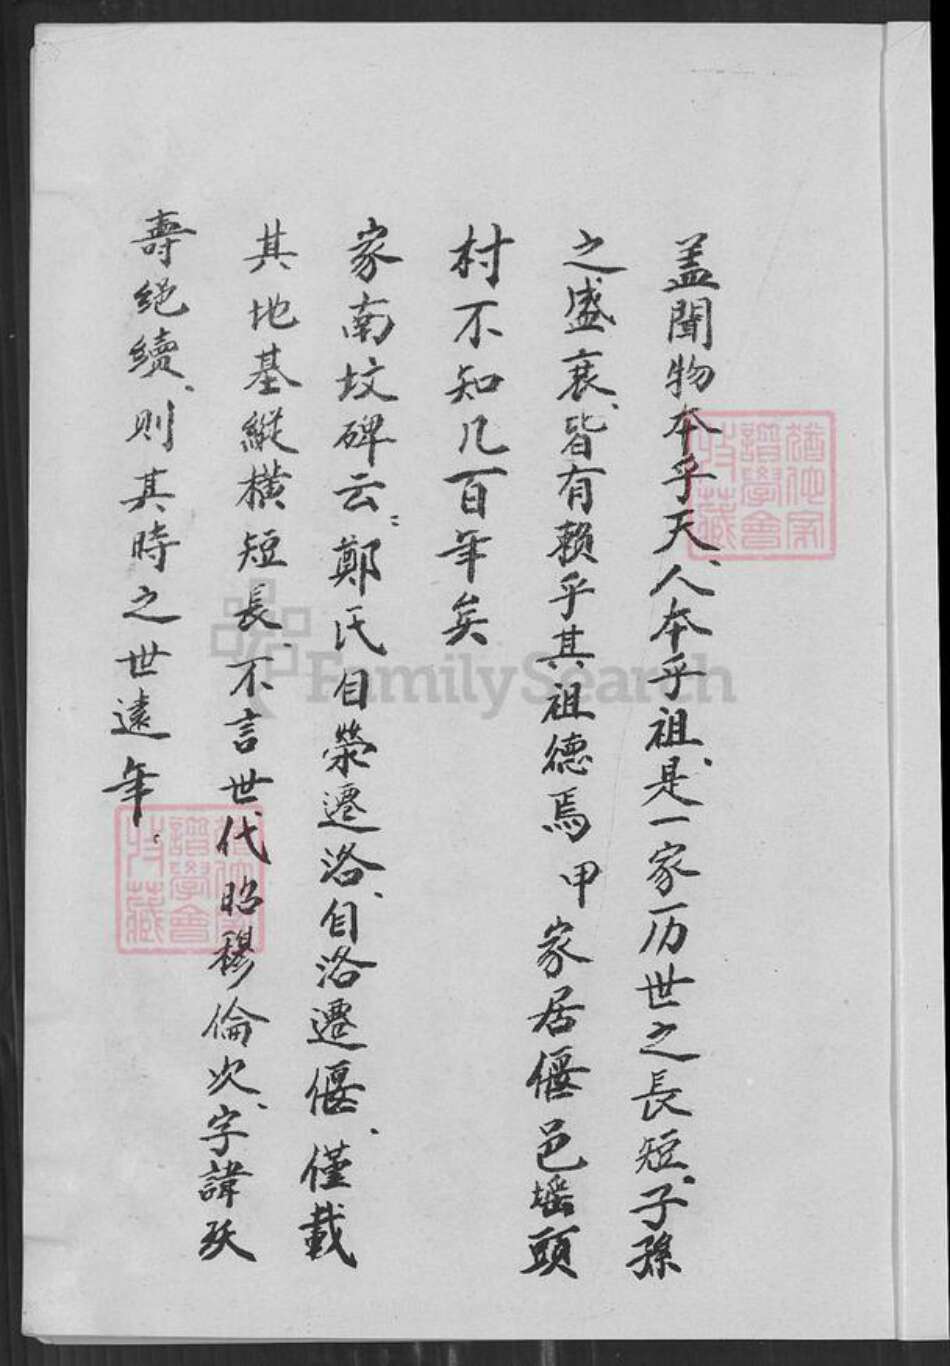 盖聞物本乎天、人本乎祖、是一家历世之長短、子孫
之盛衰、皆有賴乎其祖德焉甲家居偃邑瑶頭
村不知几百年矣
家南坟碑云：鄭氏自滎遷洛、自洛遷偃、僅載
其地基縱橫短長、不言世代昭穆倫次、字諱殀
壽绝續、則其時之世遠年
譜學會
收藏
FamilySearch
譜學會
收藏